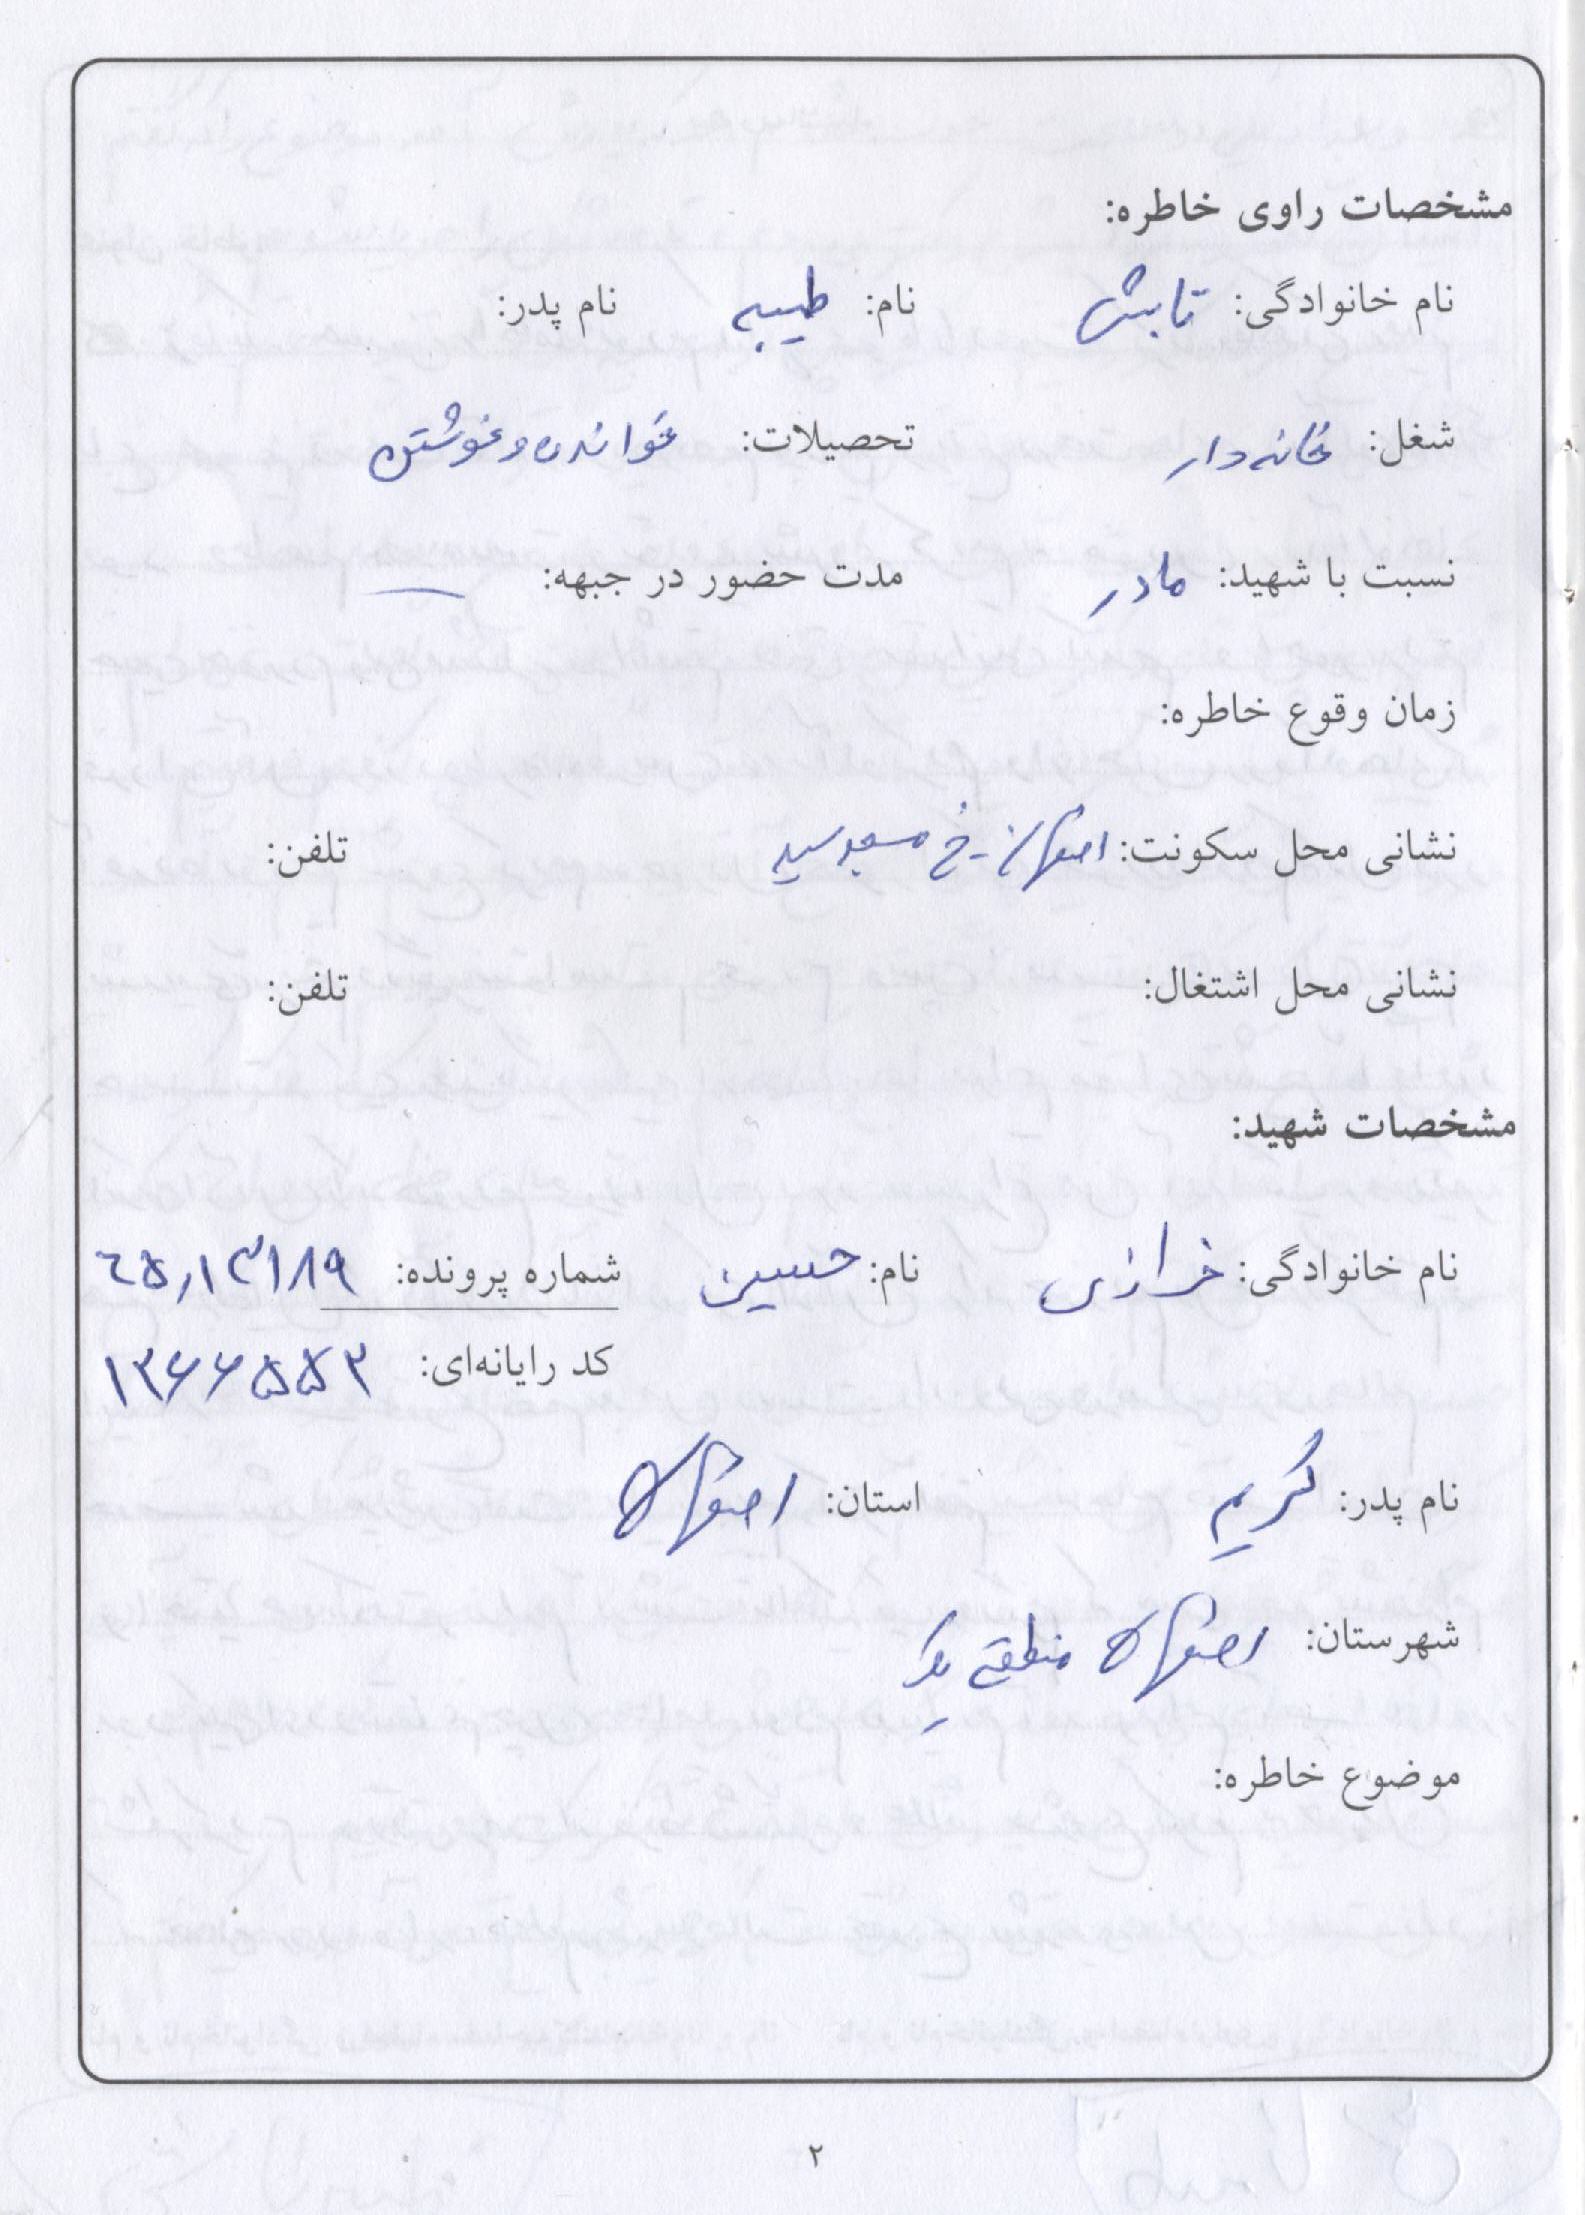 مشخصات راوی خاطره:
نام خانوادگی: تابش نام: طیبه نام پدر:
شغل: خانه دار تحصیلات: خواندن و نوشتن
نسبت با شهید: مادر مدت حضور در جبهه: —
زمان وقوع خاطره:
نشانی محل سکونت: اصفهان - خ مسجد سید تلفن:
نشانی محل اشتغال: تلفن:
مشخصات شهید:
نام خانوادگی: خرازی نام: حسین شماره پرونده:
کد رایانه‌ای: ۱۳۶۶۵۵۳
نام پدر: کریم استان: اصفهان
شهرستان: اصفهان منطقه یک
موضوع خاطره:
۲